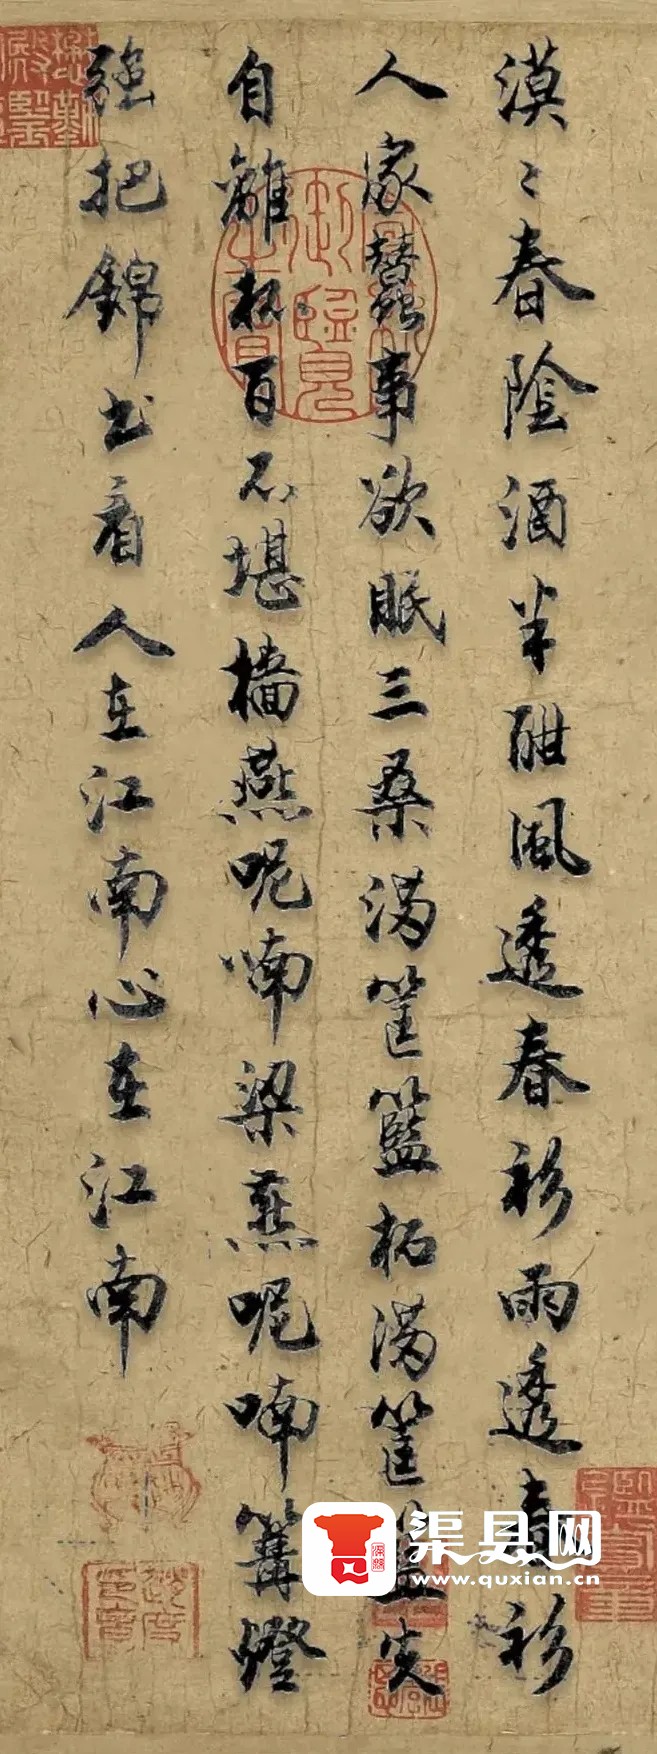 漠〻春陰酒半酣風透春衫雨透春衫
人家蠶事欲眠三桑滿筐籃柘滿筐籃先
自離懷百不堪檣燕呢喃梁燕呢喃篝燈
強把錦書看人在江南心在江南
渠县网
www.quxian.cn